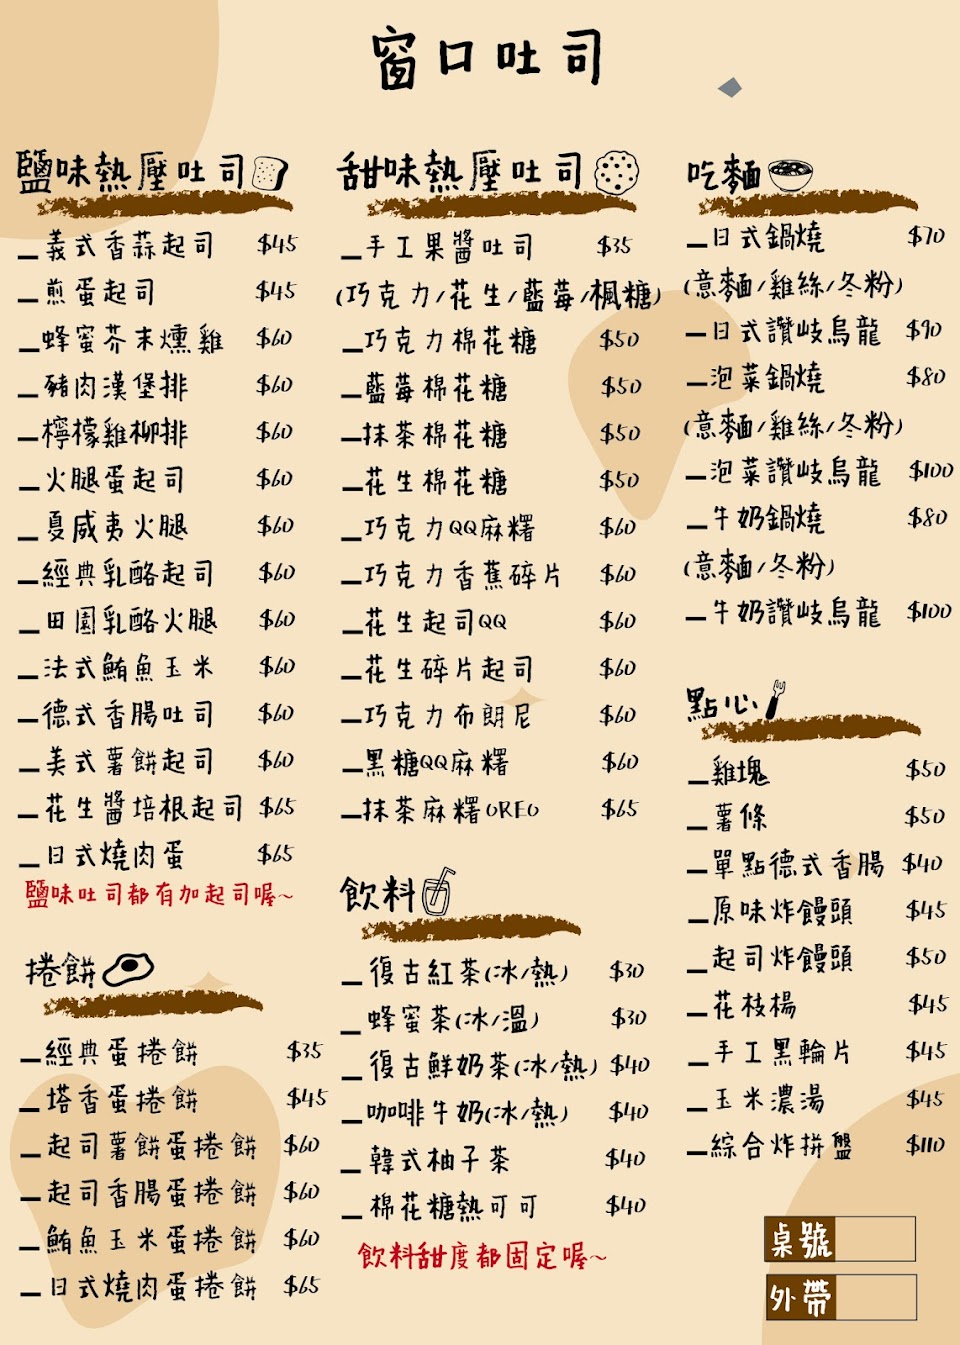 窗口吐司
鹽味熱壓吐司
_義式香蒜起司 $45
_煎蛋起司 $45
_蜂蜜芥末燻雞 $60
_豬肉漢堡排 $60
_檸檬雞柳排 $60
_火腿蛋起司 $60
_夏威夷火腿 $60
_經典乳酪起司 $60
_田園乳酪火腿 $60
_法式鮪魚玉米 $60
_德式香腸吐司 $60
_美式薯餅起司 $60
_花生醬培根起司 $65
_日式燒肉蛋 $65
鹽味吐司都有加起司喔~
捲餅
_經典蛋捲餅 $35
_塔香蛋捲餅 $45
_起司薯餅蛋捲餅 $60
_起司香腸蛋捲餅 $60
_鮪魚玉米蛋捲餅 $60
_日式燒肉蛋捲餅 $65
甜味熱壓吐司
_手工果醬吐司 $35
(巧克力/花生/藍莓/楓糖)
_巧克力棉花糖 $50
_藍莓棉花糖 $50
_抹茶棉花糖 $50
_花生棉花糖 $50
_巧克力QQ麻糬 $60
_巧克力香蕉碎片 $60
_花生起司QQ $60
_花生碎片起司 $60
_巧克力布朗尼 $60
_黑糖QQ麻糬 $60
_抹茶麻糬OREO $65
飲料
_復古紅茶(冰/熱) $30
_蜂蜜茶(冰/溫) $30
_復古鮮奶茶(冰/熱) $40
_咖啡牛奶(冰/熱) $40
_韓式柚子茶 $40
_棉花糖熱可可 $40
飲料甜度都固定喔~
吃麵
_日式鍋燒 $70
(意麵/雞絲/冬粉)
_日式讚岐烏龍 $90
_泡菜鍋燒 $80
(意麵/雞絲/冬粉)
_泡菜讚岐烏龍 $100
_牛奶鍋燒 $80
(意麵/冬粉)
_牛奶讚岐烏龍 $100
點心
_雞塊 $50
_薯條 $50
_單點德式香腸 $40
_原味炸饅頭 $45
_起司炸饅頭 $50
_花枝楊 $45
_手工黑輪片 $45
_玉米濃湯 $45
_綜合炸拼盤 $110
桌號
外帶